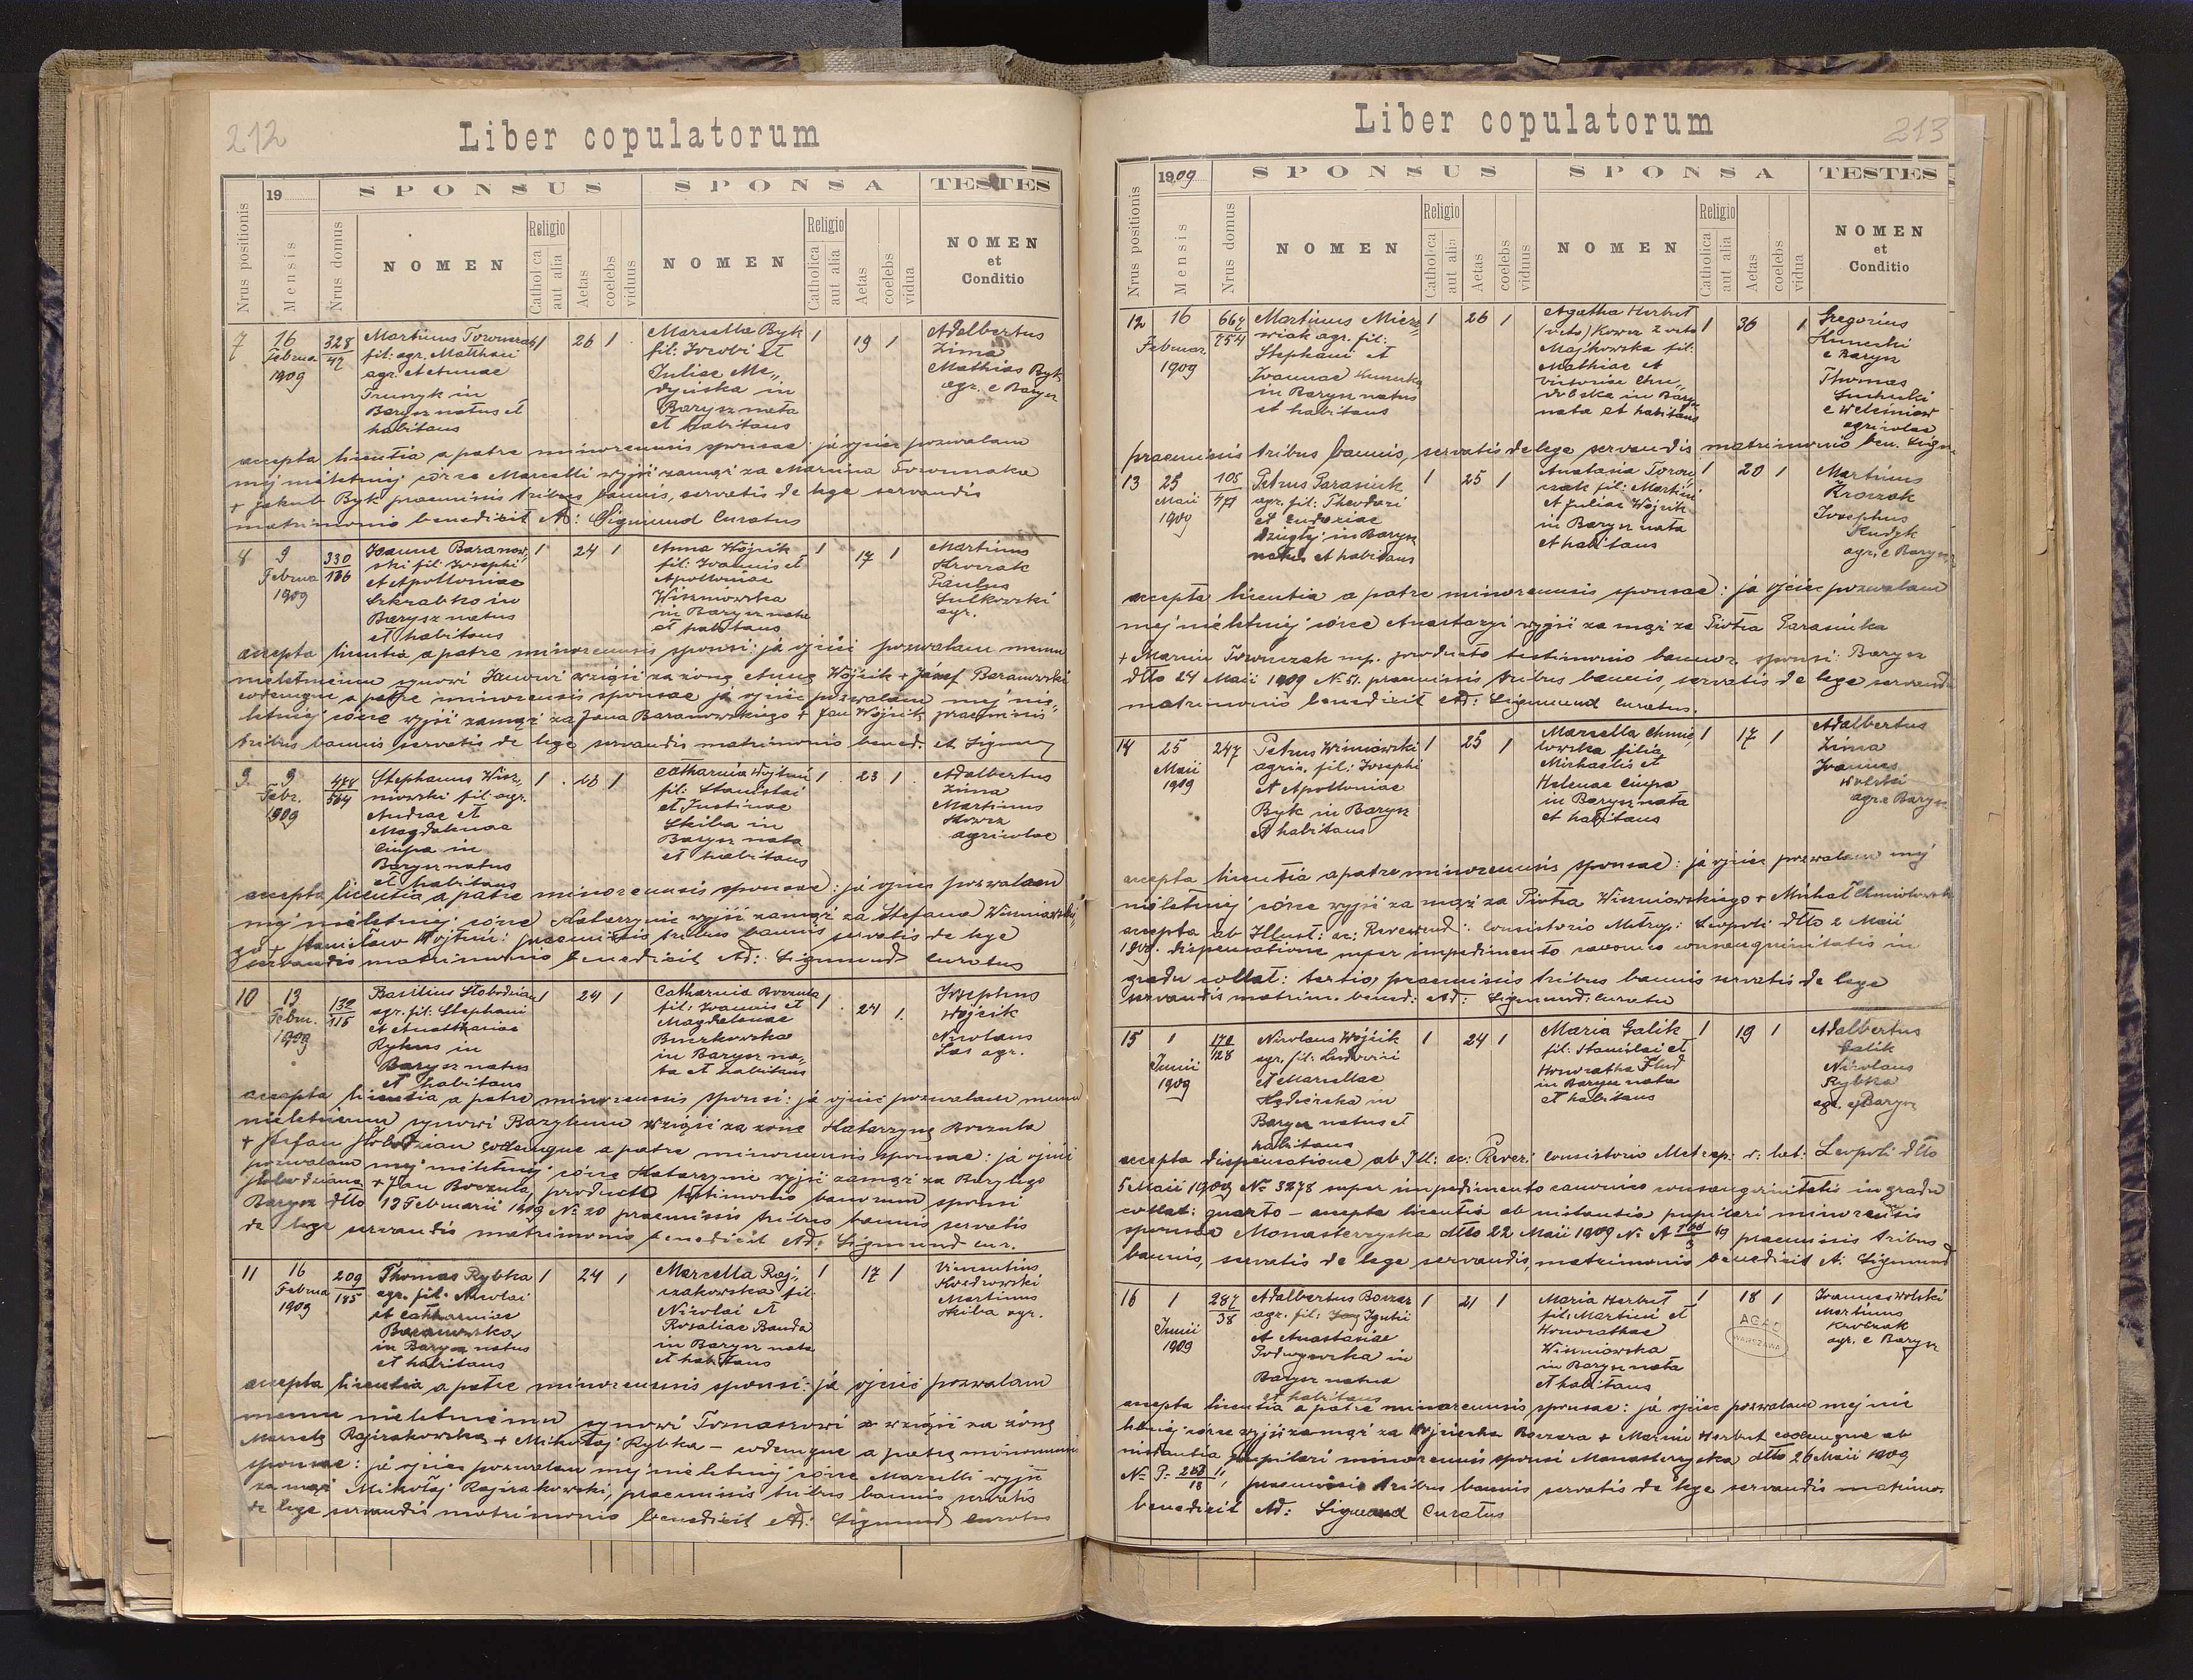 212
Liber copulatorum
Nrus positionis
19
Mensis
Nrus domus
SPONSUS
NOMEN
Religio
Catholica
aut alia
Aetas
coelebs
viduus
SPONSA
NOMEN
Religio
Catholica
aut alia
Aetas
coelebs
vidua
TESTES
NOMEN
et
Conditio
7
16
Februa
1909
328
42
Martinus Torończak
fil: agr. Matthaei
agr. et Annae
in
Barysz natus et
habitans
1
26
1
Marcella Byk
fil: Jacobi et
Juliae
in
Barysz nata
et habitans
1
19
1
Adalbertus
Zima
Mathias Byk
agr. e Barysz
accepta licentia a patre minorennis sponsae: ja ojciec pozwalam
mej nieletniej córce Marcelli wyjść zamąż za Marcina
+ Jakub Byk praemissis tribus bannis, servatis de lege servandis
matrimonio benedixit Ad: Sigmund Curatus
8
9
Februa
1909
330
186
Joannes Baranow-
ski fil: Josephi
et Apolloniae
Szkrabko in
Barysz natus
et habitans
1
24
1
Anna Wójcik
fil: Joannis et
Apolloniae
Wiszniowska
in Barysz nata
et habitans
1
17
1
Martinus
Kroczak
Paulus
Sułkowski
agr.
accepta licentia a patre minorennis sponsi: ja ojciec pozwalam memu
nieletniemu synowi Janowi wziąść za żonę Annę Wójcik + Józef Baranowski
eodemque a patre minorennis sponsae ja ojciec pozwalam mej nie-
letniej córce wyjść zamąż za Jana Baranowskiego + Jan Wójcik praemissis
tribus bannis servatis de lege servandis matrimonio bened. Ad Sigmund
9
9
Febr.
1909
474
564
Stephanus Wisz-
niowski fil: agr.
Andreae et
Magdalenae
Ciupa in
Barysz natus
et habitans
1
1
Catharina Wójtuń
fil: Stanislai
et Justinae
Skiba in
Barysz nata
et habitans
1
23
1
Adalbertus
Zima
Martinus
Kowcz
agricolae
accepta licentia a patre minorennis sponsae: ja ojciec pozwalam
mej nieletniej córce Katarzynie wyjść zamąż za Stefana Wiszniowskie-
go + Stanisław Wójtuń: praemissis tribus bannis servatis de lege
servandis matrimonio benedixit Ad: Sigmund Curatus
10
13
Febru.
1909
132
115
Basilius Słobodzian
agr. fil: Stephani
et Anastasiae
in
Barysz natus
et habitans
1
24
1
Catharina Boczula
fil: Joannis et
Magdalenae
Buczkowska
in Barysz na-
ta et habitans
1
24
1
Josephus
Wójcik
Nicolaus
Las agr.
accepta licentia a patre minorennis sponsi: ja ojciec pozwalam memu
nieletniemu synowi Bazylemu wziąść za żonę Katarzynę Boczula
+ Stefan Słobodzian eodemque a patre minorennis sponsae: ja ojciec
pozwalam mej nieletniej córce Katarzynie wyjść zamąż za Bazylego
Słobodziana + Jan Boczula, producto testimonio bannorum sponsi
Barysz dtto 13 Februarii 1909 No 20 praemissis tribus bannis servatis
de lege servandis matrimonio benedixit Ad: Sigmund cur.
11
16
Februa
1909
209
185
Thomas Rybka
agr. fil: Nicolai
et Catharinae
Baranowska
in Barysz natus
et habitans
1
24
1
Marcella Raj-
czakowska fil:
Nicolai et
Rosaliae Banda
in Barysz nata
et habitans
1
17
1
Vincentius
Martinus
Skiba agr.
accepta licentia a patre minorennis sponsi: ja ojciec pozwalam
memu nieletniemu synowi Tomaszowi wziąść za żonę
+ Mikołaj Rybka – eodemque a patre minorennis
sponsae: ja ojciec pozwalam mej nieletniej córce Marcelli wyjść
za mąż Mikołaj praemissis tribus bannis servatis
de lege servandis matrimonio benedixit Ad: Sigmund curatus
Liber copulatorum
213
Nrus positionis
1909
Mensis
Nrus domus
SPONSUS
NOMEN
Religio
Catholica
aut alia
Aetas
coelebs
viduus
SPONSA
NOMEN
Religio
Catholica
aut alia
Aetas
coelebs
vidua
TESTES
NOMEN
et
Conditio
12
16
Februar
1909
664
754
Martinus Miecz-
wiak agr. fil:
Stephani et
Joannae
in Barysz natus
et habitans
1
26
1
Agatha Herbut
(voto) Kowcz 2 voto
Majkowska fil:
Mathiae et
Victoriae
in Barysz
nata et habitans
1
36
1
Gregorius
e Barysz
Thomas
agricolae
praemissis tribus bannis, servatis de lege servandis matrimonio ben. Sigm
13
25
Maii
1909
105
471
Petrus Parasiuk
agr. fil: Theodori
et Eudoxiae
in Barysz
natus et habitans
1
25
1
Anastasia Toroń-
czak fil: Martini
et Juliae Wójcik
in Barysz nata
et habitans
1
20
1
Martinus
Kroczak
Josephus
Rudyk
agr. e Barysz
accepta licentia a patre minorennis sponsae: ja ojciec pozwalam
mej nieletniej córce Anastazyi wyjść za mąż za Piotra Parasiuka
+ Marcin Torończak mp. producto testimonio bannor. sponsi Barysz
dtto 24 Maii 1909 No 51. praemissis tribus bannis, servatis de lege servandis
matrimonio benedixit Ad: Sigmund Curatus.
14
25
Maii
1909
247
Petrus Wisniowski
agric. fil: Josephi
et Apolloniae
Byk in Barysz
et habitans
1
25
1
Marcella Chmie-
lowska filia
Michaelis et
Helenae Ciupa
in Barysz nata
et habitans
1
17
1
Adalbertus
Zima
Joannes
Wolski
agr. e Barysz
accepta licentia a patre minorennis sponsae: ja ojciec pozwalam mej
nieletniej córce wyjść za mąż za Piotra Wiszniowskiego + Michał Chmielowski
accepta ab Illust: ac: Reverend: Consistorio Metrop: Leopoli dtto 2 Maii
1909. dispensatione super impedimento canonico consanguinitatis in
gradu collat: tertio, praemissis tribus bannis servatis de lege
servandis matrim. bened: Ad: Sigmund: curatu
15
1
Junii
1909
128
Nicolaus Wójcik
agr. fil: Ludovici
et Marcellae
in
Barysz natus et
habitans
1
24
1
Maria Galik
fil: Stanislai et
Honorathae
in Barysz nata
et habitans
1
19
1
Adalbertus
Galik
Nicolaus
Rybka
agr. e Barysz
accepta dispensatione ab Ill: ac: Rever: Consistorio Metrop: r: lat: Leopoli dtto
5 Maii 1909 No 3278 super impedimento canonico consanguinitatis in gradu
collat: quarto – accepta licentia ab instantia pupilari minorennis
sponsae Monasterzyska dtto 22 Maii 1909 praemissis tribus
bannis, servatis de lege servandis, matrimonio benedixit A: Sigmund
16
1
Junii
1909
287
38
Adalbertus Boczar
agr. fil: Ignatii
et Anastasiae
in
Barysz natus
et habitans
1
21
1
Maria Herbut
fil: Martini et
Honorathae
Wiszniowska
in Barysz nata
et habitans
1
18
1
Joannes Wolski
Martinus
Kroczak
agr. e Barysz
AGAD
WARSZAWA
accepta licentia a patre minorennis sponsae: ja ojciec pozwalam mej nie
letniej córce wyjść zamąż za Wojciecha Boczara + Marcin Herbut eodemque ab
instantia pupilari minorennis sponsi Monasterzyska dtto 26 Maii 1909
praemissis tribus bannis servatis de lege servandis matrimo.
benedixit Ad: Sigmund Curatus